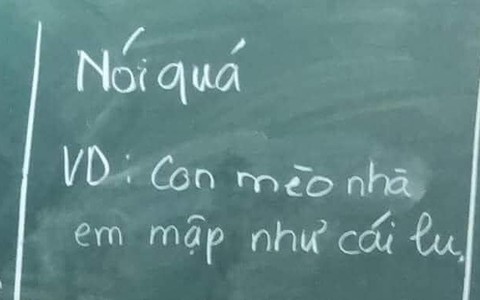 Nói quá
VD: Con mèo nhà
em mập như cái lu.